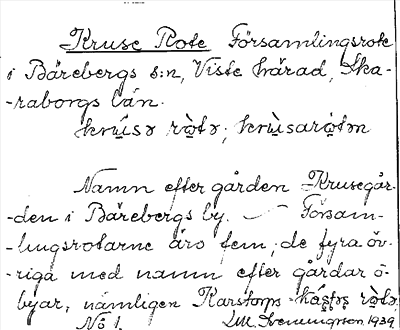 Kruse Rote Församlingsrote
i Bärebergs s:n, Viste härad, Ska-
-raborgs län.
krúsə ròtə, krùsaròtən
Namn efter gården Krusegår-
-den i Bärebergs by. — Försam-
-lingsrotarne äro fem; de fyra öv-
-riga med namn efter gårdar o-
byar, nämligen Karstorps -káʂtəʂ ròtə,
No 1. 1939